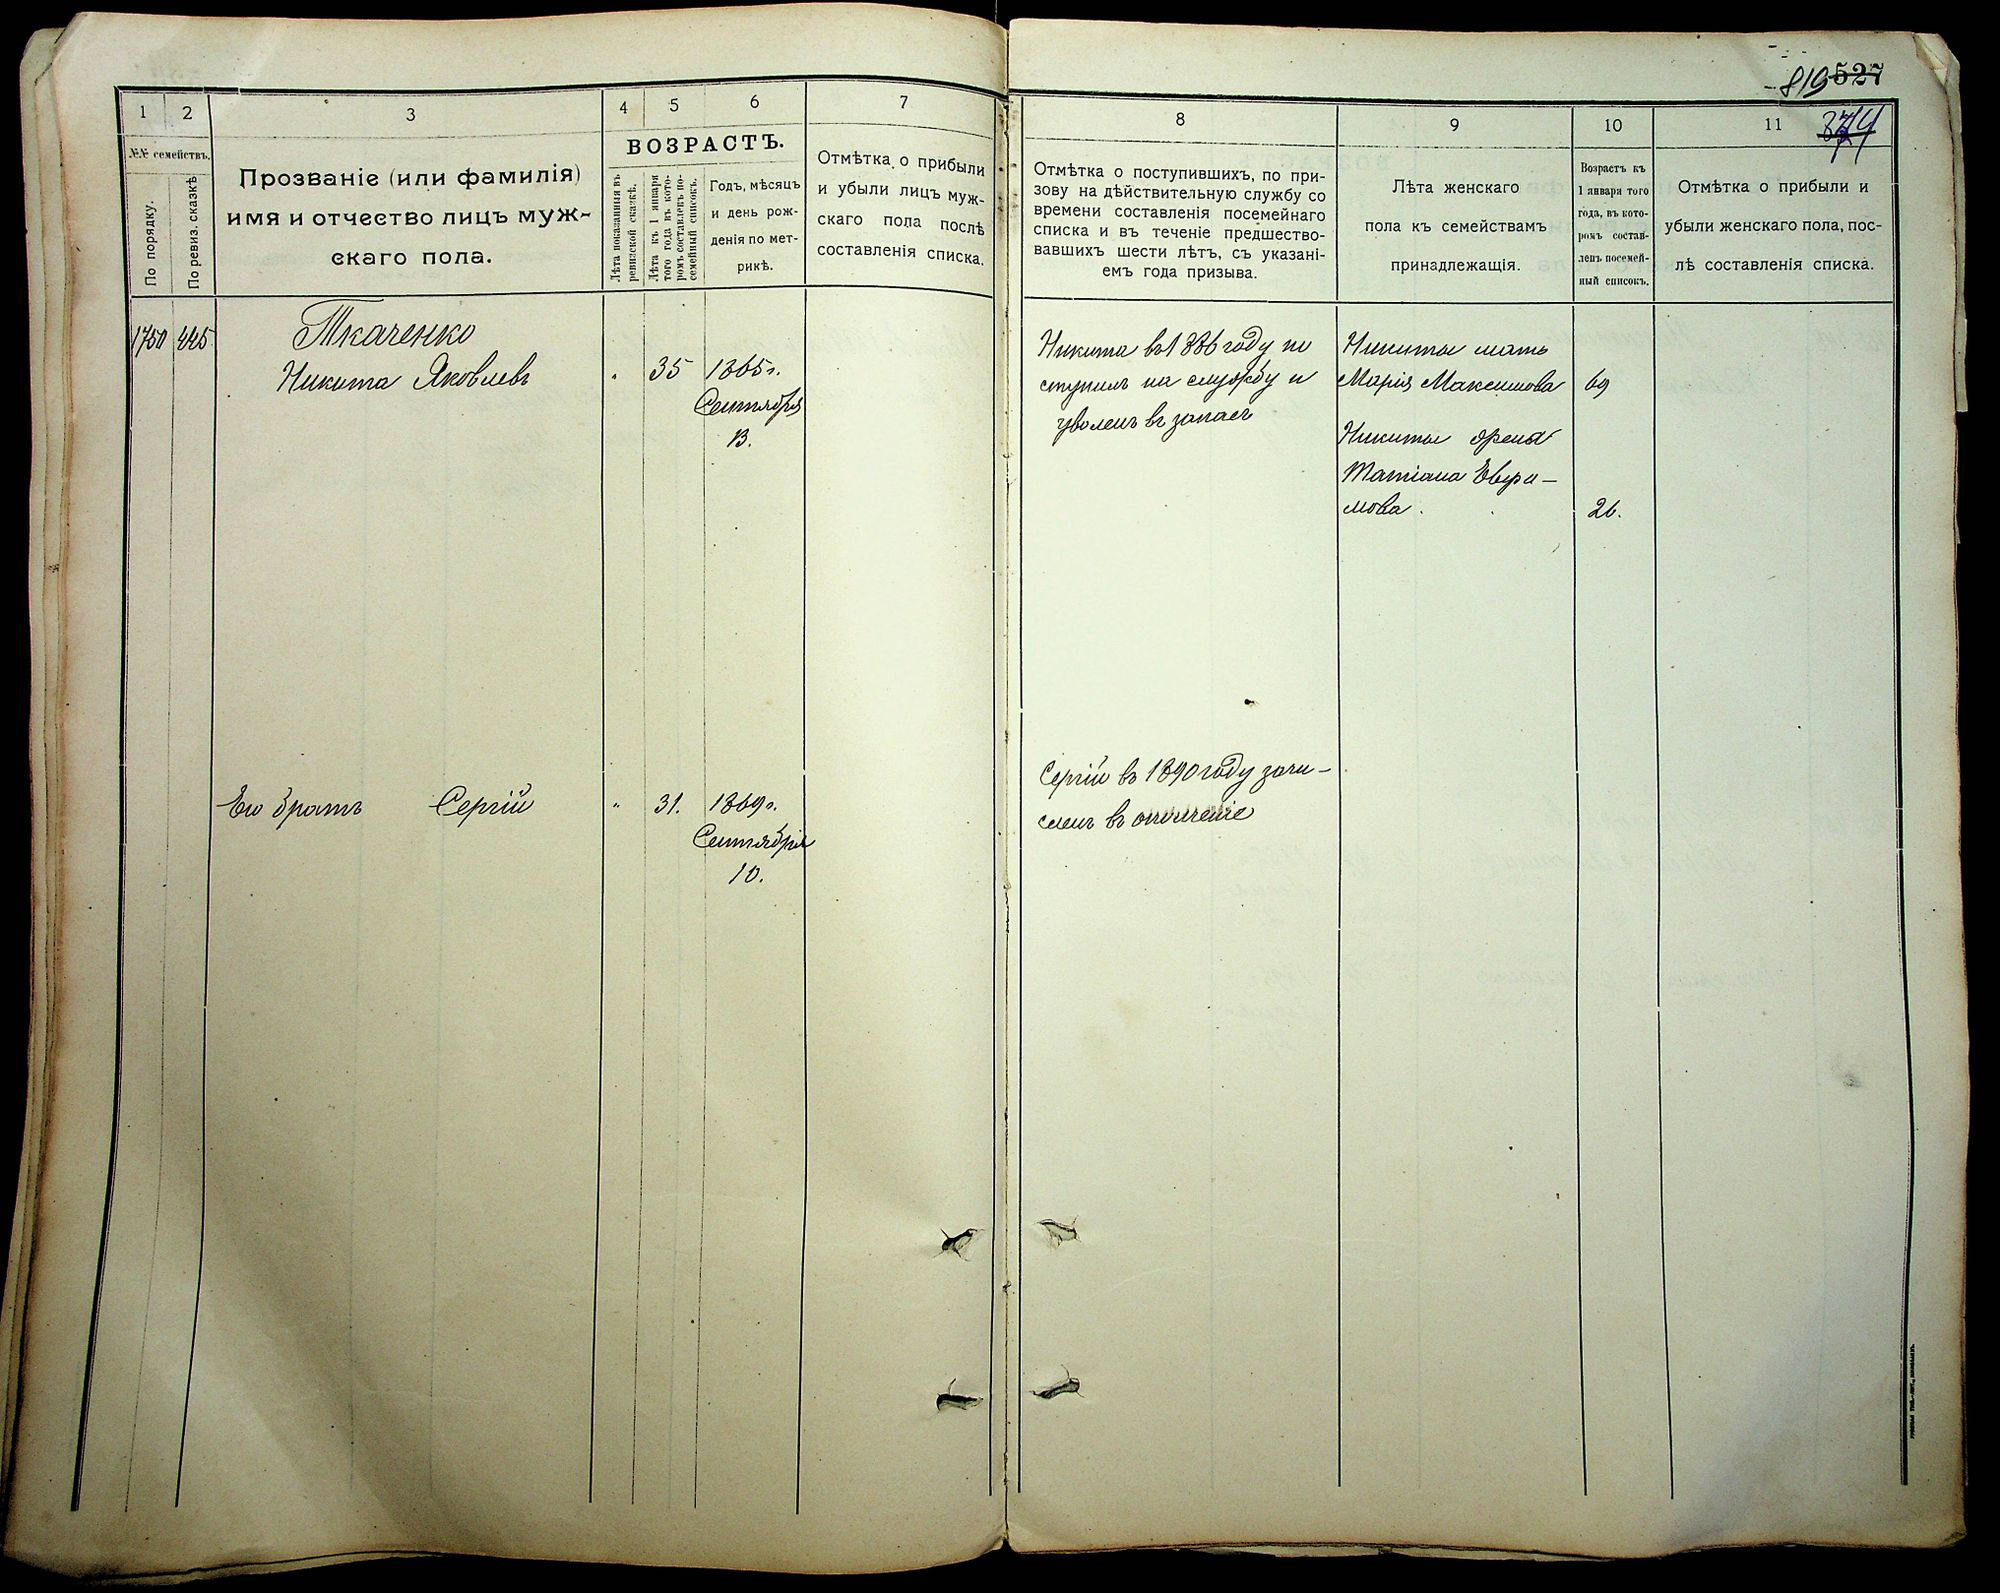 819 527
374
1
2
3
4
5
6
7
№№ семействъ.
По порядку.
По ревиз. сказкѣ
Прозваніе (или фамилія)
имя и отчество лицъ муж-
скаго пола.
ВОЗРАСТЪ.
Лѣта показанныя въ
ревизской сказкѣ.
Лѣта къ 1 января
того года въ кото-
ромъ составленъ по-
семейный списокъ.
Годъ, мѣсяцъ
и день рож-
денія по мет-
рикѣ.
Отмѣтка о прибыли
и убыли лицъ муж-
скаго пола послѣ
составленія списка.
1750 445
Ткаченко
Никита Яковлевъ
" 35 1865 г.
Сентября
13.
Его братъ Сергій
" 31. 1869 г.
Сентября
10.
8
9
10
11
Отмѣтка о поступившихъ, по при-
зову на дѣйствительную службу со
времени составленія посемейнаго
списка и въ теченіе предшество-
вавшихъ шести лѣтъ, съ указані-
емъ года призыва.
Лѣта женскаго
пола къ семействамъ
принадлежащія.
Возрастъ къ
1 января того
года, въ кото-
ромъ состав-
ленъ посемей-
ный списокъ.
Отмѣтка о прибыли и
убыли женскаго пола, пос-
лѣ составленія списка.
Никита въ 1886 году по
ступилъ на службу и
уволенъ въ запасъ
Никиты мать
Марія Максимова 69
Никиты жена
Татіана Ефри-
мова. 26.
Сергій въ 1890 году зачи-
сленъ въ ополченіе